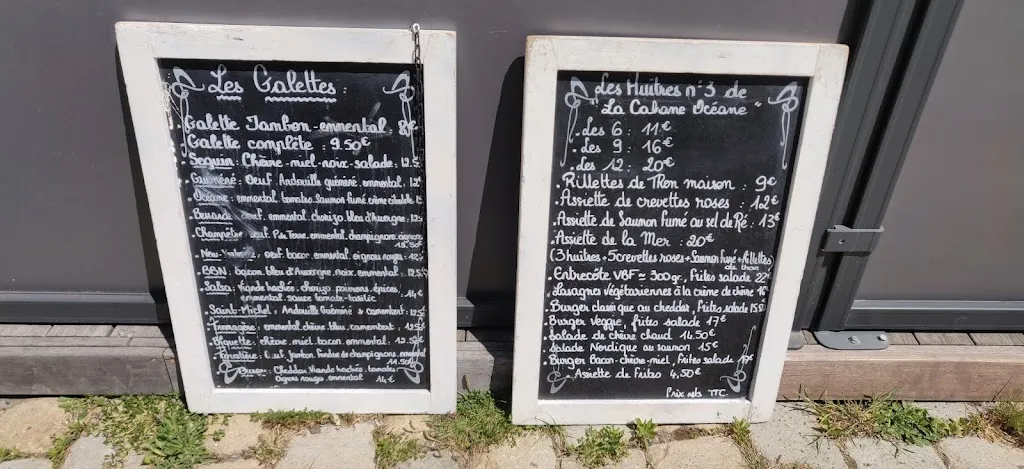 Les Galettes :
. Galette Jambon - emmental : 8€
. Galette complète : 9.50€
. Seguin : Chèvre - miel - noix - salade : 12.5
. Guémené : œuf. Andouille guémené. emmental. 12€
. Océane : emmental. tomates. Saumon fumé crème ciboulette
. œuf. emmental. chorizo. bleu d'Auvergne. 12.5
. Champêtre : œuf. P. de Terre. emmental. champignons. oignons
13.50€
. New- : œuf. bacon. emmental. oignons rouges. 12.5
. BBN : bacon. bleu d'Auvergne. noix. emmental. 12.50
. Salsa : Viande hachée. chorizo. poivrons. épices.
emmental. sauce tomate-basilic 14€
. Saint-Michel : Andouille Guémené & camembert. 12.5
. Fromagère : emmental. chèvre. bleu. camembert. 13.50
. Biquette : chèvre. miel. bacon. emmental. 12.50€
. œuf. jambon. Fondue de champignons. emmental
. Cheddar. Viande hachée. tomates
oignons rouges. emmental 14€
Les Huîtres n°3 de
"La Cabane Océane"
. Les 6 : 11€
. Les 9 : 16€
. Les 12 : 20€
. Rillettes de Thon maison : 9€
. Assiette de crevettes roses : 12€
. Assiette de Saumon Fumé au sel de Ré : 13€
. Assiette de la Mer : 20€
(3 huîtres + 5 crevettes roses + Saumon fumé + Rillettes
de thon)
. Entrecôte VBF = 300gr, Frites salade 22€
. Lasagnes végétariennes à la crème de chèvre 16€
. Burger classique au cheddar, frites salade 15.50
. Burger Veggie, frites salade 17€
. Salade de chèvre chaud 14.50€
. Salade Nordique au saumon 15€
. Burger Bacon-chèvre-miel, Frites salade 17€
. Assiette de Frites 4,50€
Prix nets TTC.